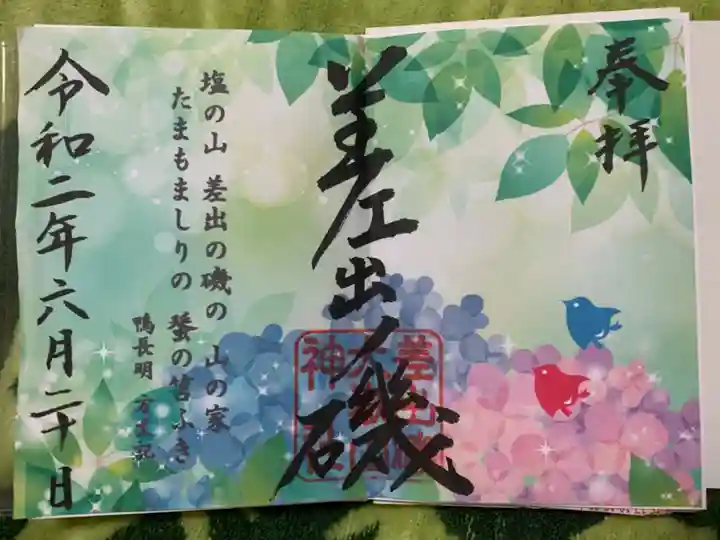 奉拝
差出ノ磯
塩の山 差出の磯の 山の家
たまもましりの 蜑の笛ふき
鴨長明 方丈記
令和二年六月二十日